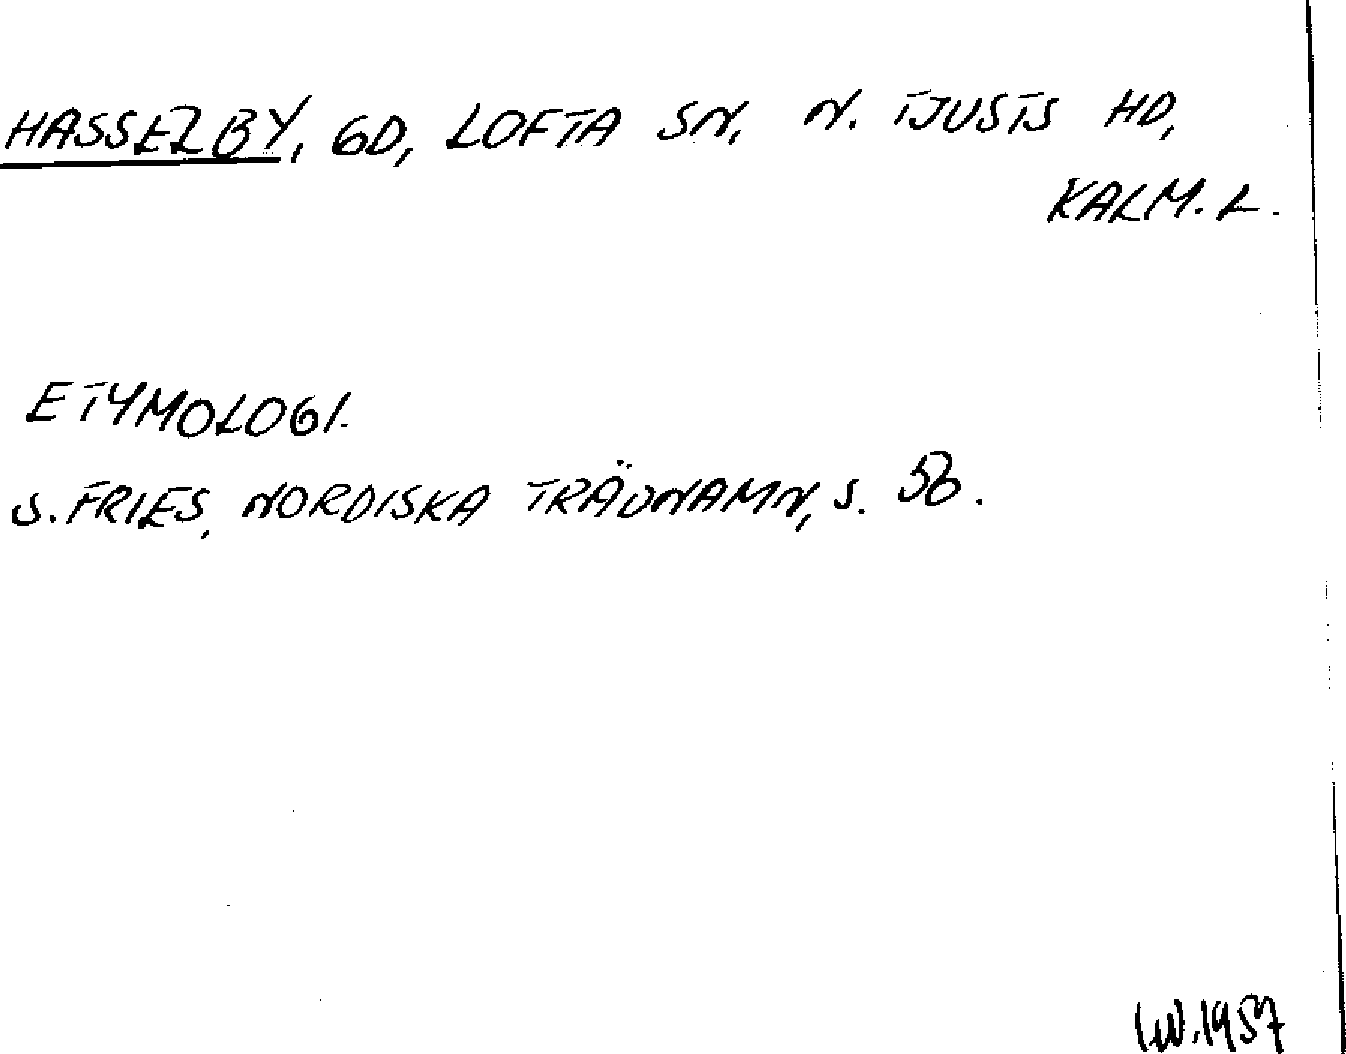 HASSELBY, GD, LOFTA SN, N. TJUSTS HD,
KALM. L.
ETYMOLOGI.
S. FRIES, NORDISKA TRÄDNAMN, S. 56.
I.W. 1957